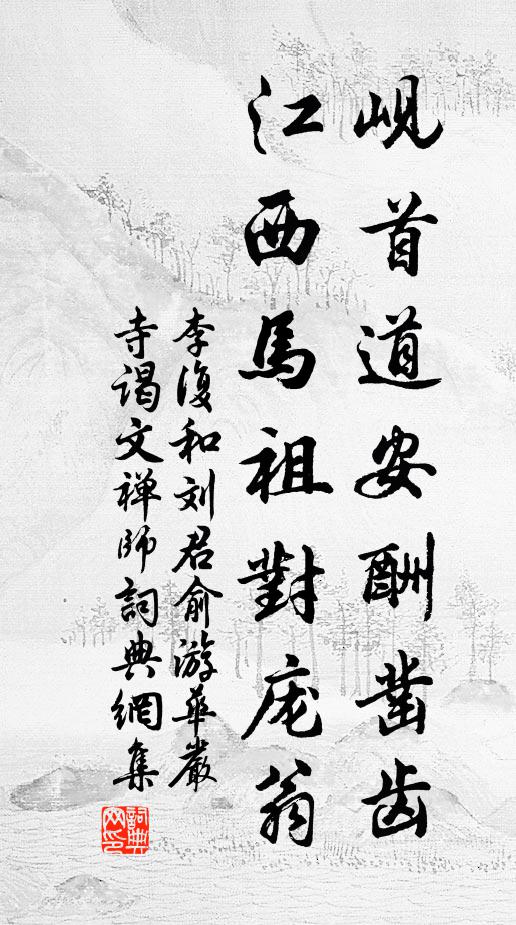 岘首道安酬凿齿
江西馬祖對庞翁
李復和刘君俞游華嚴
寺谒文禅师詞典網集
詞典網印